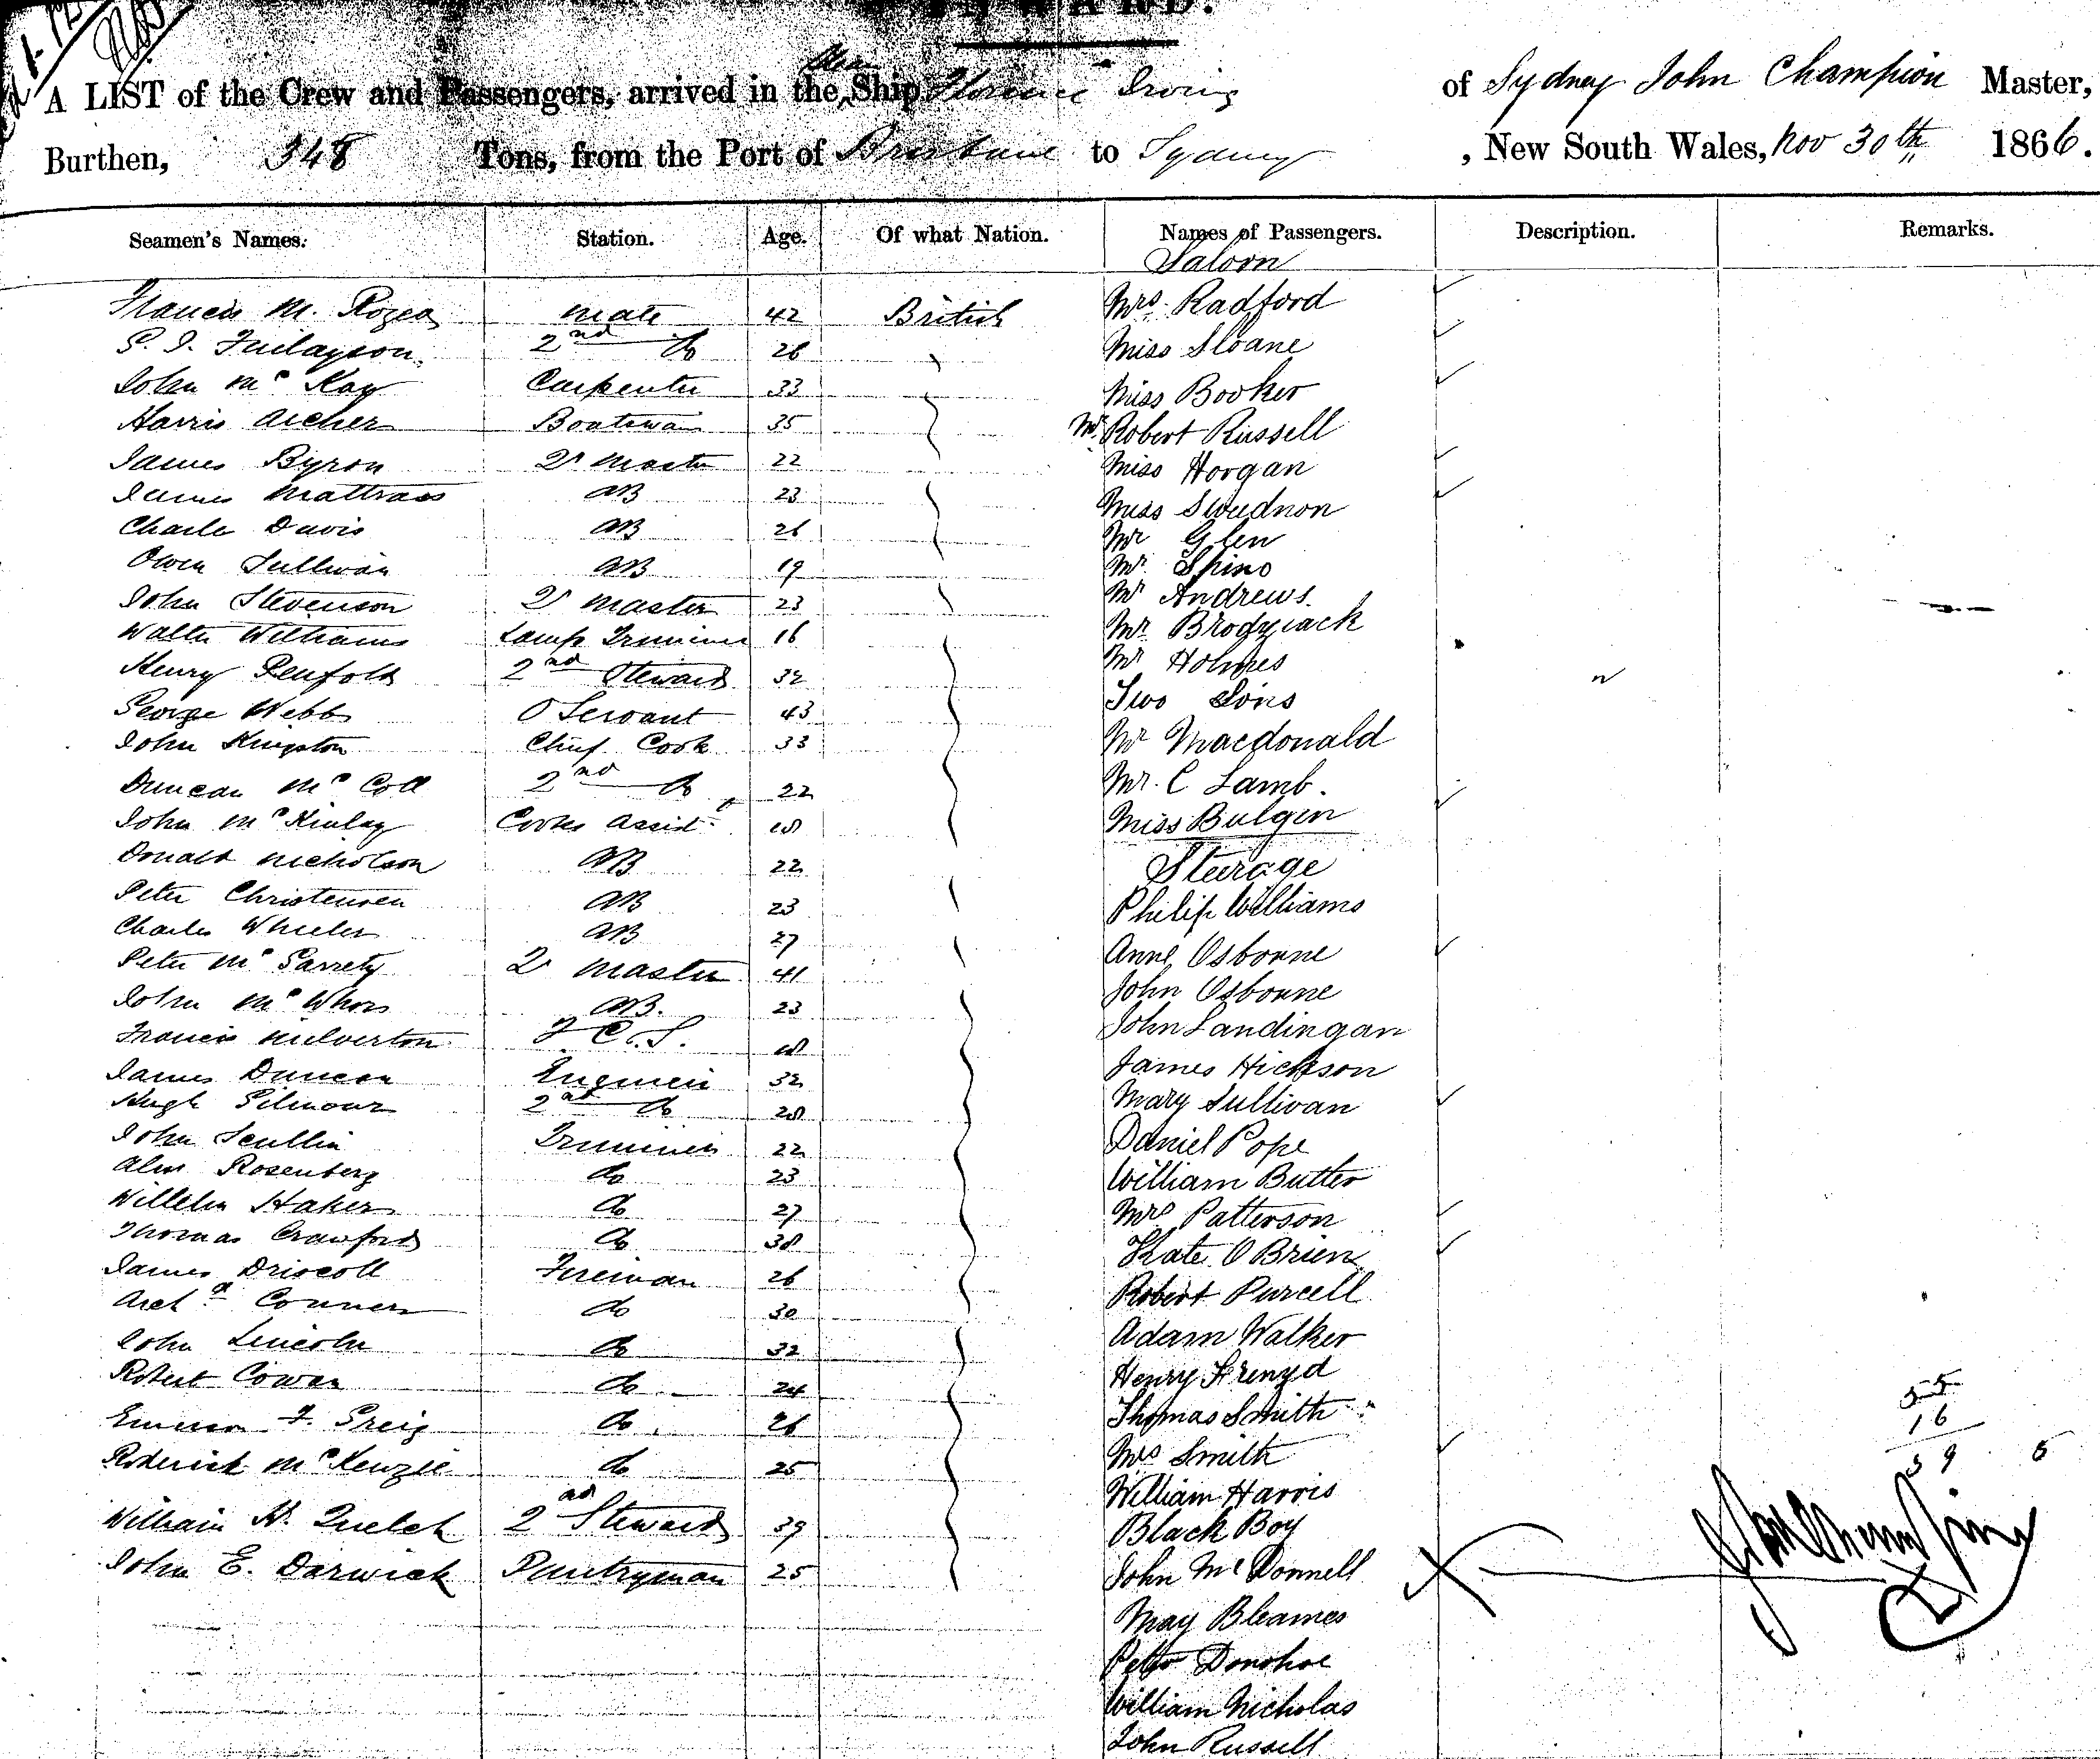 A LIST of the Crew and Passengers, arrived in the Ship Florence Irving of Sydney John Champion Master,
Burthen, 348 Tons, from the Port of Brisbane to Sydney , New South Wales, Nov 30th 1866.
Seamen's Names. Station. Age. Of what Nation. Names of Passengers. Description. Remarks.
Saloon
Francis M. Roger Mate 42 British Mrs. Radford
2nd do 26 Miss Sloane
John Mc Kay Carpenter 33 Miss Booker
Harris Archer Boatswan 35 Mr Robert Russell
James Byron Qr Master 22 Miss Horgan
James Mattrass AB 23 Miss
Charles Davis AB 26 Mr Glen
Owen Sullivan AB 19 Mr. Spino
John Stevenson Qr Master 23 Mr Andrews.
Walter Williams Lamp Trimmer 16 Mr
Henry Penfold 2nd Steward 32 Mr Holmes
George Webb O Servant 43 Two Sons
John Kingston Chief Cook 33 Mr Macdonald
Duncan Mc Coll 2nd do 22 Mr. C Lamb.
John McKinlay Cooks Assist 18 Miss Bulgin
Donald Nicholson AB 22 Sturage
Peter Christensen AB 23 Philip Williams
Charles Wheeler AB 27 Anne Osbonne
Peter Mc Garrety Qr Master 41 John Osbonne
John Mc Whors AB. 23 John Landingan
Francis Milverton F. C. S. 18 James Hickson
James Duncan Engineer 32 Mary Sullivan
Hugh Gilmour 2nd do 28 Daniel Pope
John Scullin Trimmer 22 William Butler
Alex Rosenberg do 23 Mrs Patterson
Willelm Haker do 27 Kate O Brien
Thomas Crawford do 38 Robert Purcell
James Driscoll Fireman 26 Adam Walker
Archd Conners do 30 Henry
John Lincoln do 32 Thomas Smith
Robert Cowan do 24 Mrs Smith
F. Greig do 26 William Harris
Roderick McKenzie do 25 Black Boy
William H. Quelch 2nd Steward 39 John Mc Donnell
John E. Darwick Pantryman 25 May Bleames
Peter Donohoe
William Nicholas
John Russell
16